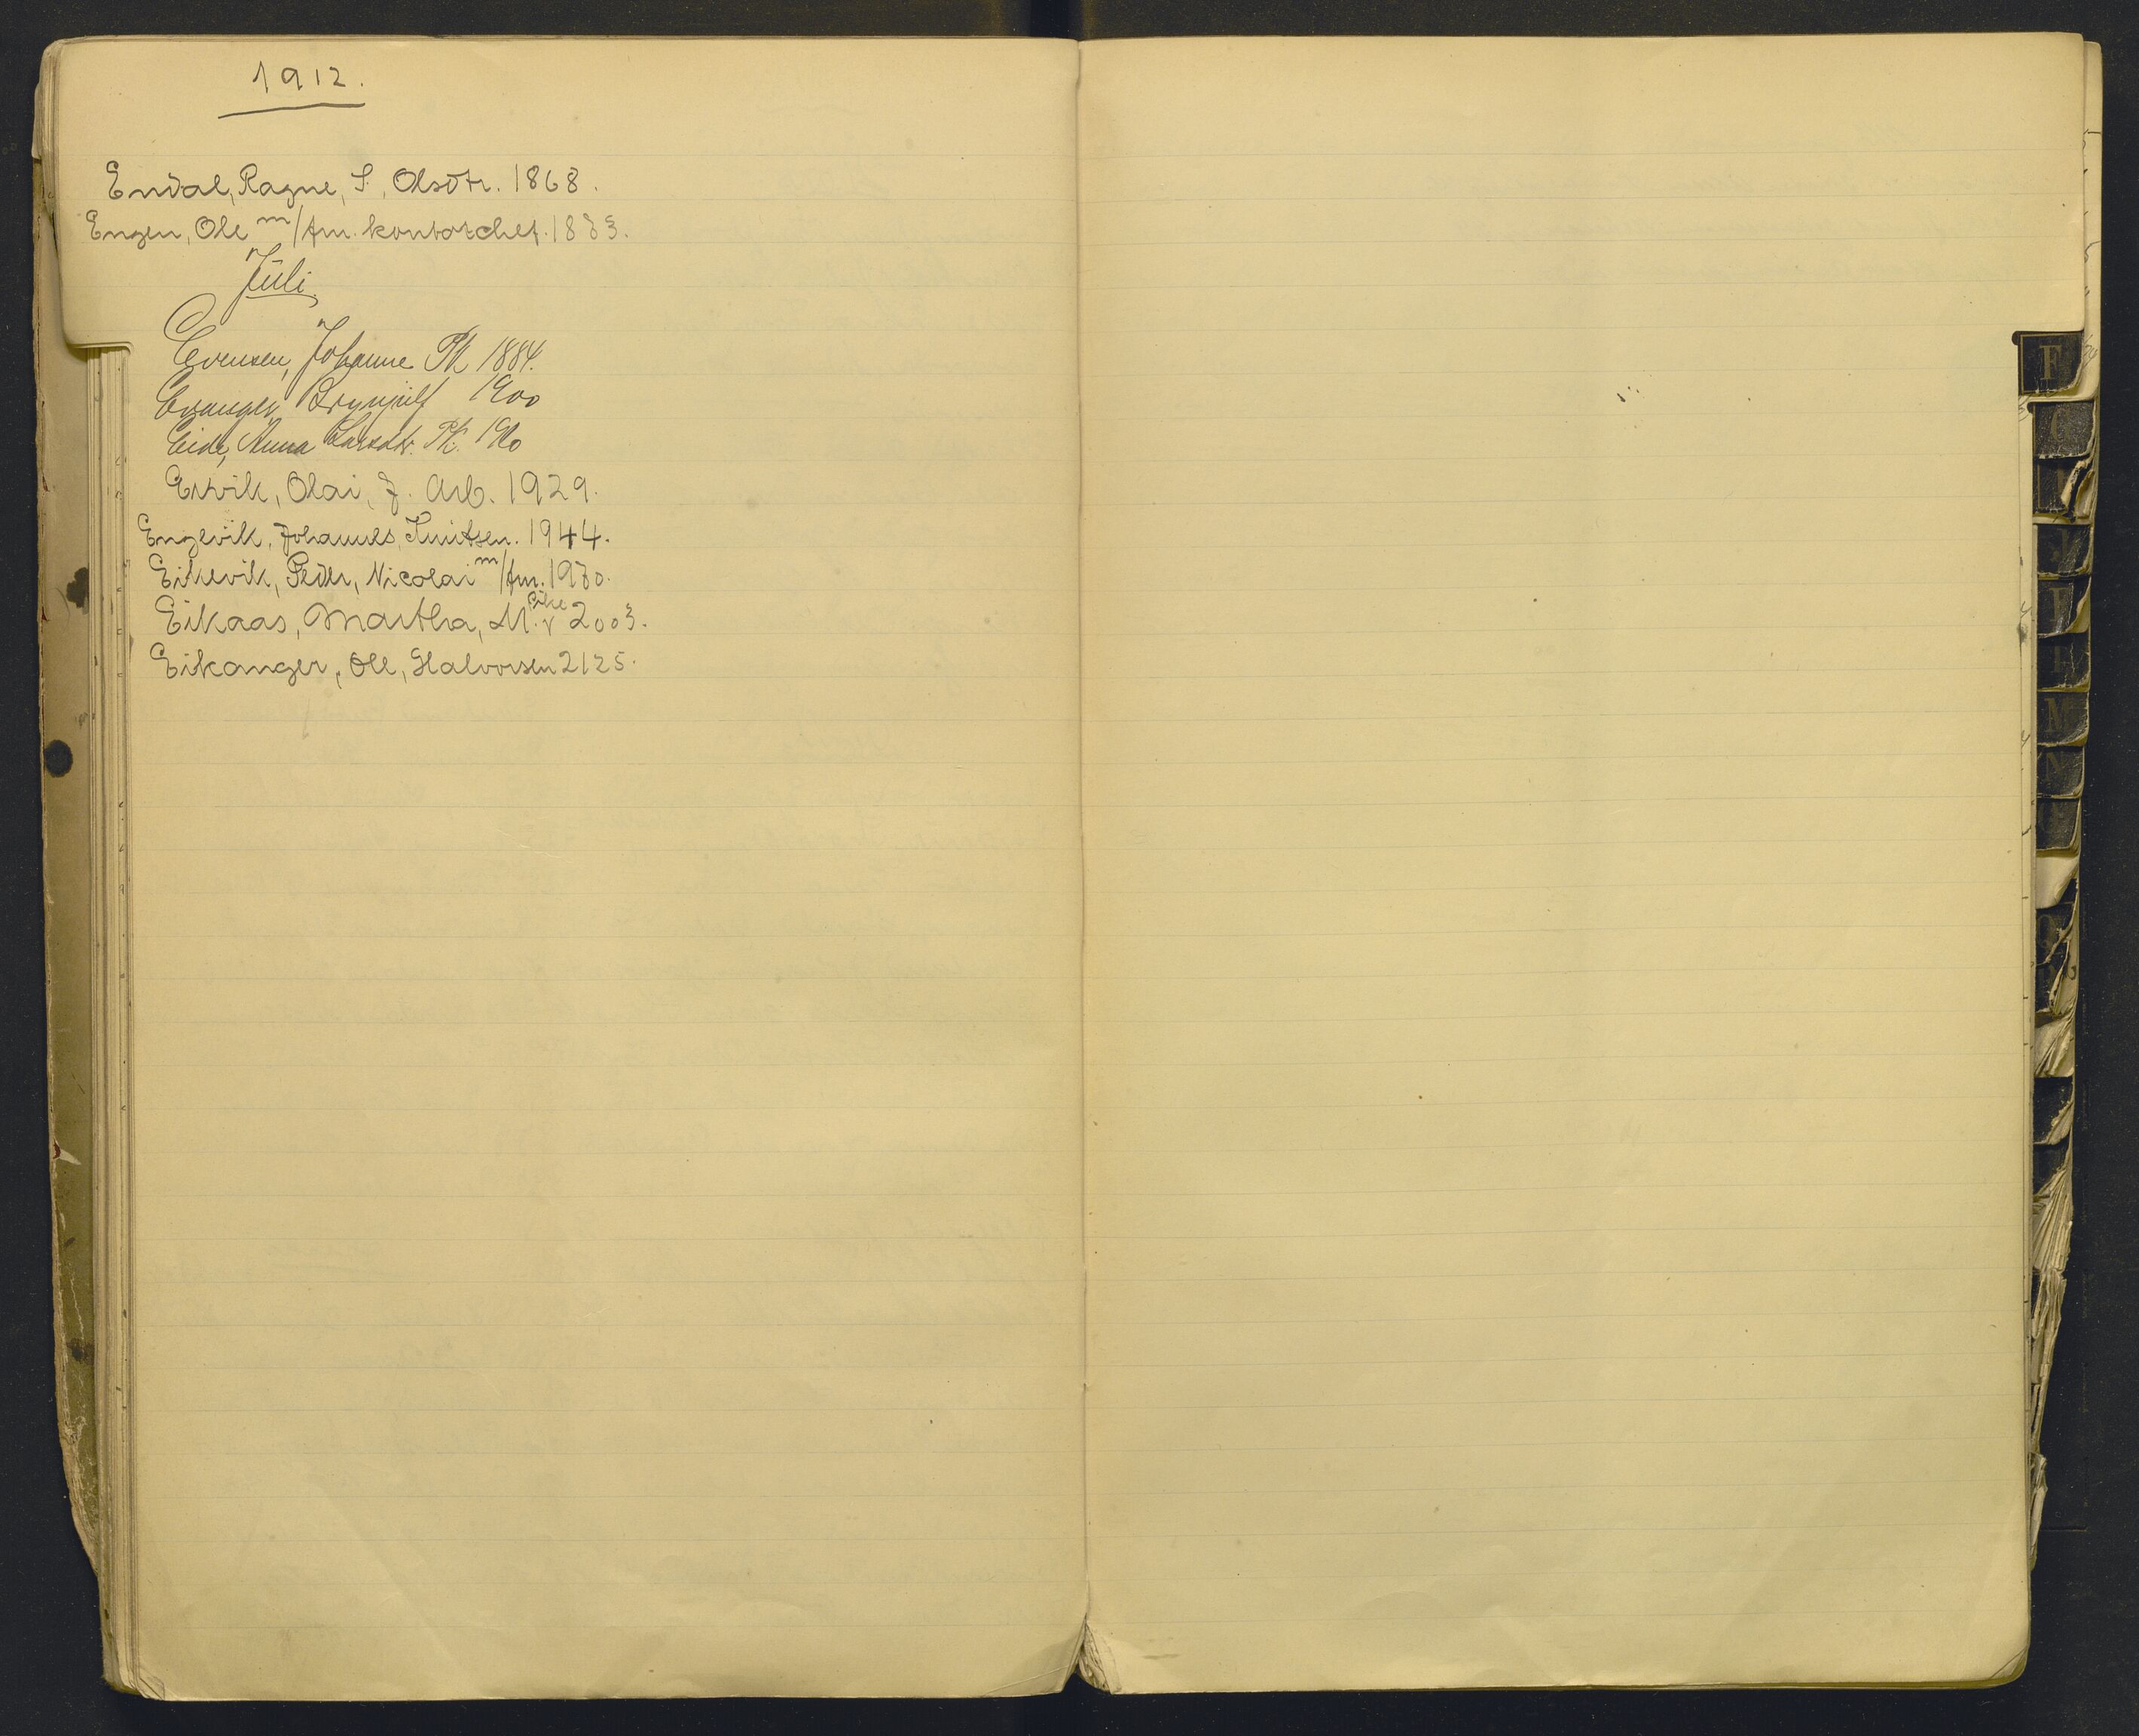 1912.
Endal, Ragne, S. Olsdtr. 1868.
Engen, Ole m/fm. kontorchef. 1883.
Juli
Evensen, Johanne Pk 1884.
Evanger, Brynjulf 1900
Eide, Anna Larsdtr. Pk.
Ervik, Olai, J. Arb. 1929.
Engevik, Johannes, Knutsen. 1944.
Eikevik, Peder, Nicolai m/fm. 1970.
Eikaas, Martha, M. Pike 2003.
Eikanger, Ole, Halvorsen 2125.
F
M
N